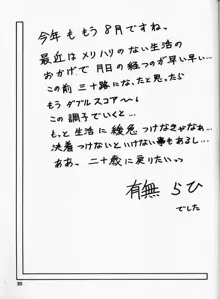 今年ももう8月ですね。
最近はメリハリのない生活の
おかげで月日の経つのが早い早い…
この前三十路になったと思ったら
もうダブルスコア〜。
この調子でいくと…
もっと生活に緩急つけなきゃなぁ…
決着つけないといけない事もあるし…
ああ、二十歳に戻りたいっ
有無らひ
でした